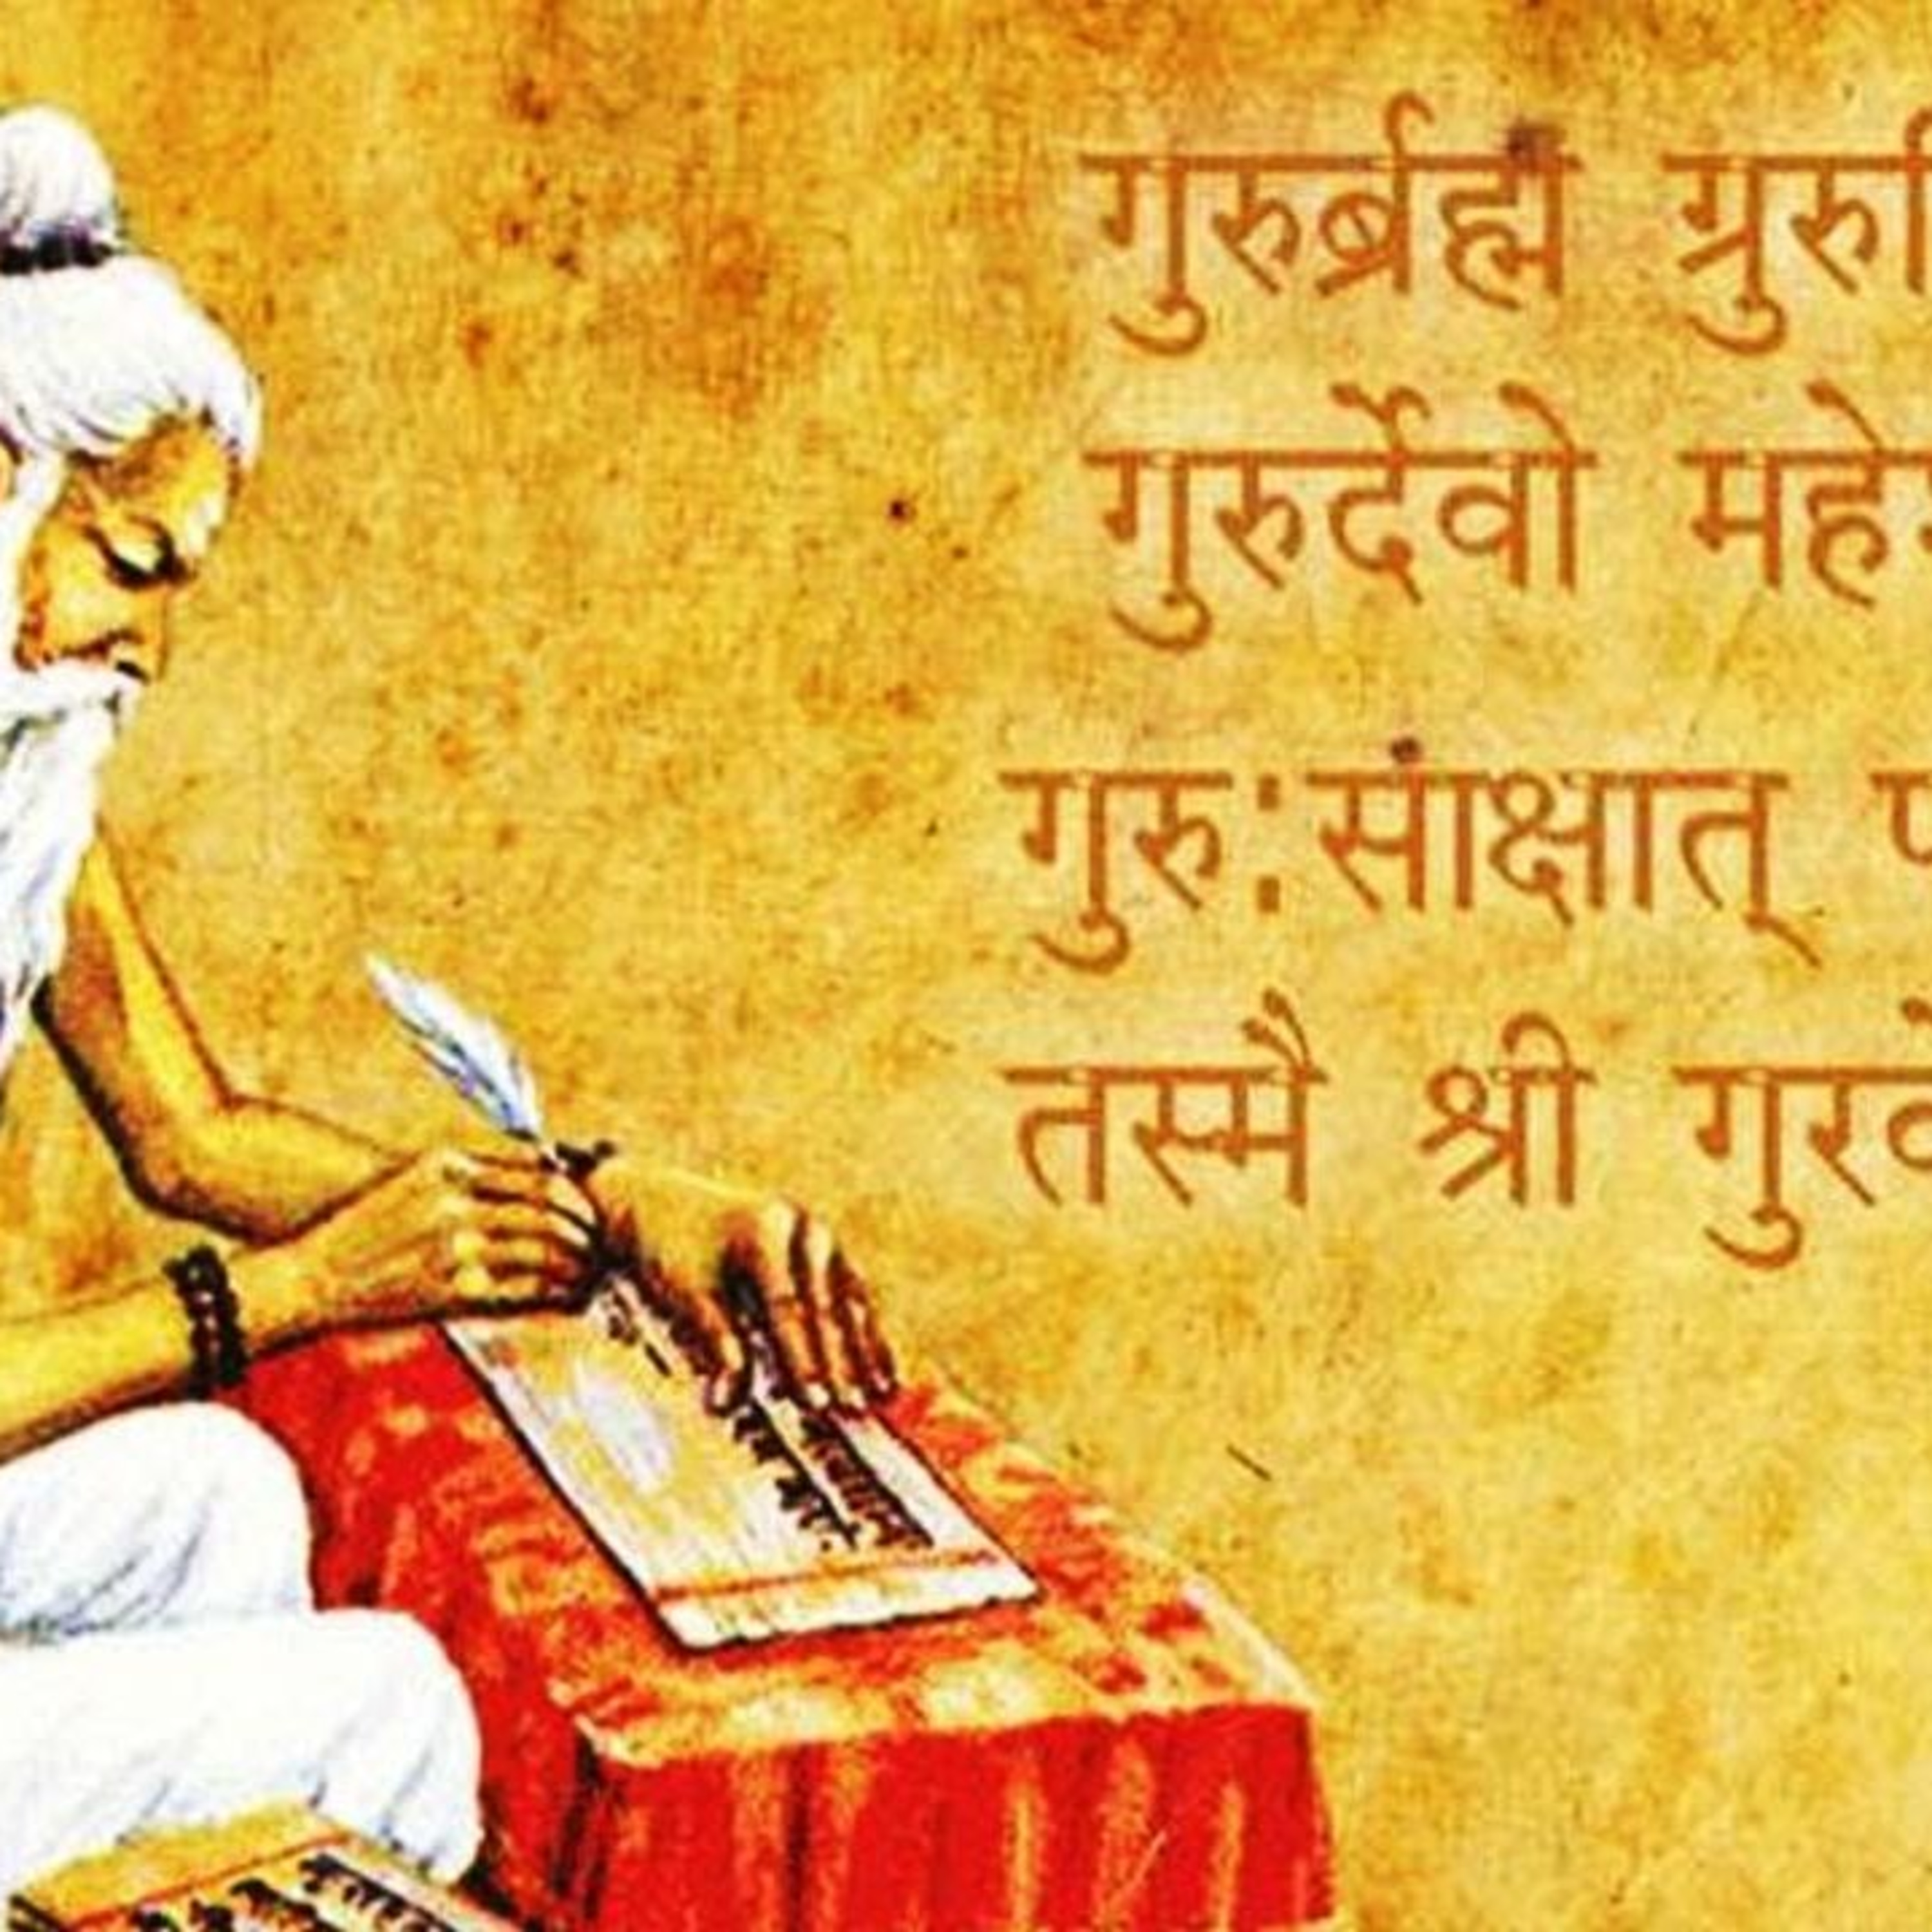 गुरुर्ब्रह्मं ग्रुरु
गुरुर्देवो महे
गुरु:सांक्षात् प
तस्मै श्री गुरवे